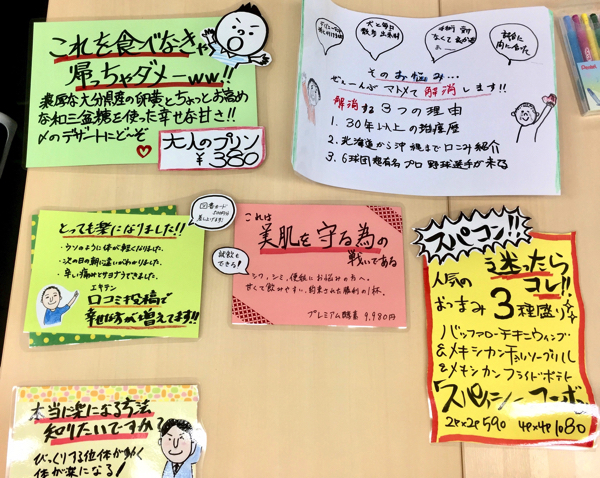 これを食べなきゃ
帰っちゃダメーww!!
濃厚な大分県産の卵黄とちょっとお高め
な和三盆糖を使った幸せな甘さ!!
〆のデザートにど~ぞ
大人のプリン
¥380
そのお悩み…
ぜーんぶマトメて解消します!!
解消する3つの理由
1.30年以上の
2.北海道から沖縄まで口コミ紹介
3.6球団超有名プロ野球選手が来る
とっても楽になりました!!
・ウソのように体が軽くなりました。
・次の日の朝に違いがわかりました。
・辛い痛みとサヨナラできました。
エキテン
口コミ投稿で
幸せな方が増えてます!!
試飲も
できる!
これは
美肌を守る為の
戦いである
シワ、シミ、便秘にお悩みの方へ。
甘くて飲みやすい、約束された勝利の1杯。
プレミアム酵素 9,980円
スパコン!!
迷ったら
コレ!!
人気の
おつまみ3種盛り
バッファローチキンウィング
&メキシカンチョリソーグリル
&メキシカンフライドポテト
スパイシーコンボ
2P×2P590 4P×4P1080
本当に楽になる方法
知りたいですか?
びっくりする位体が動く
体が楽になる!
Pentel